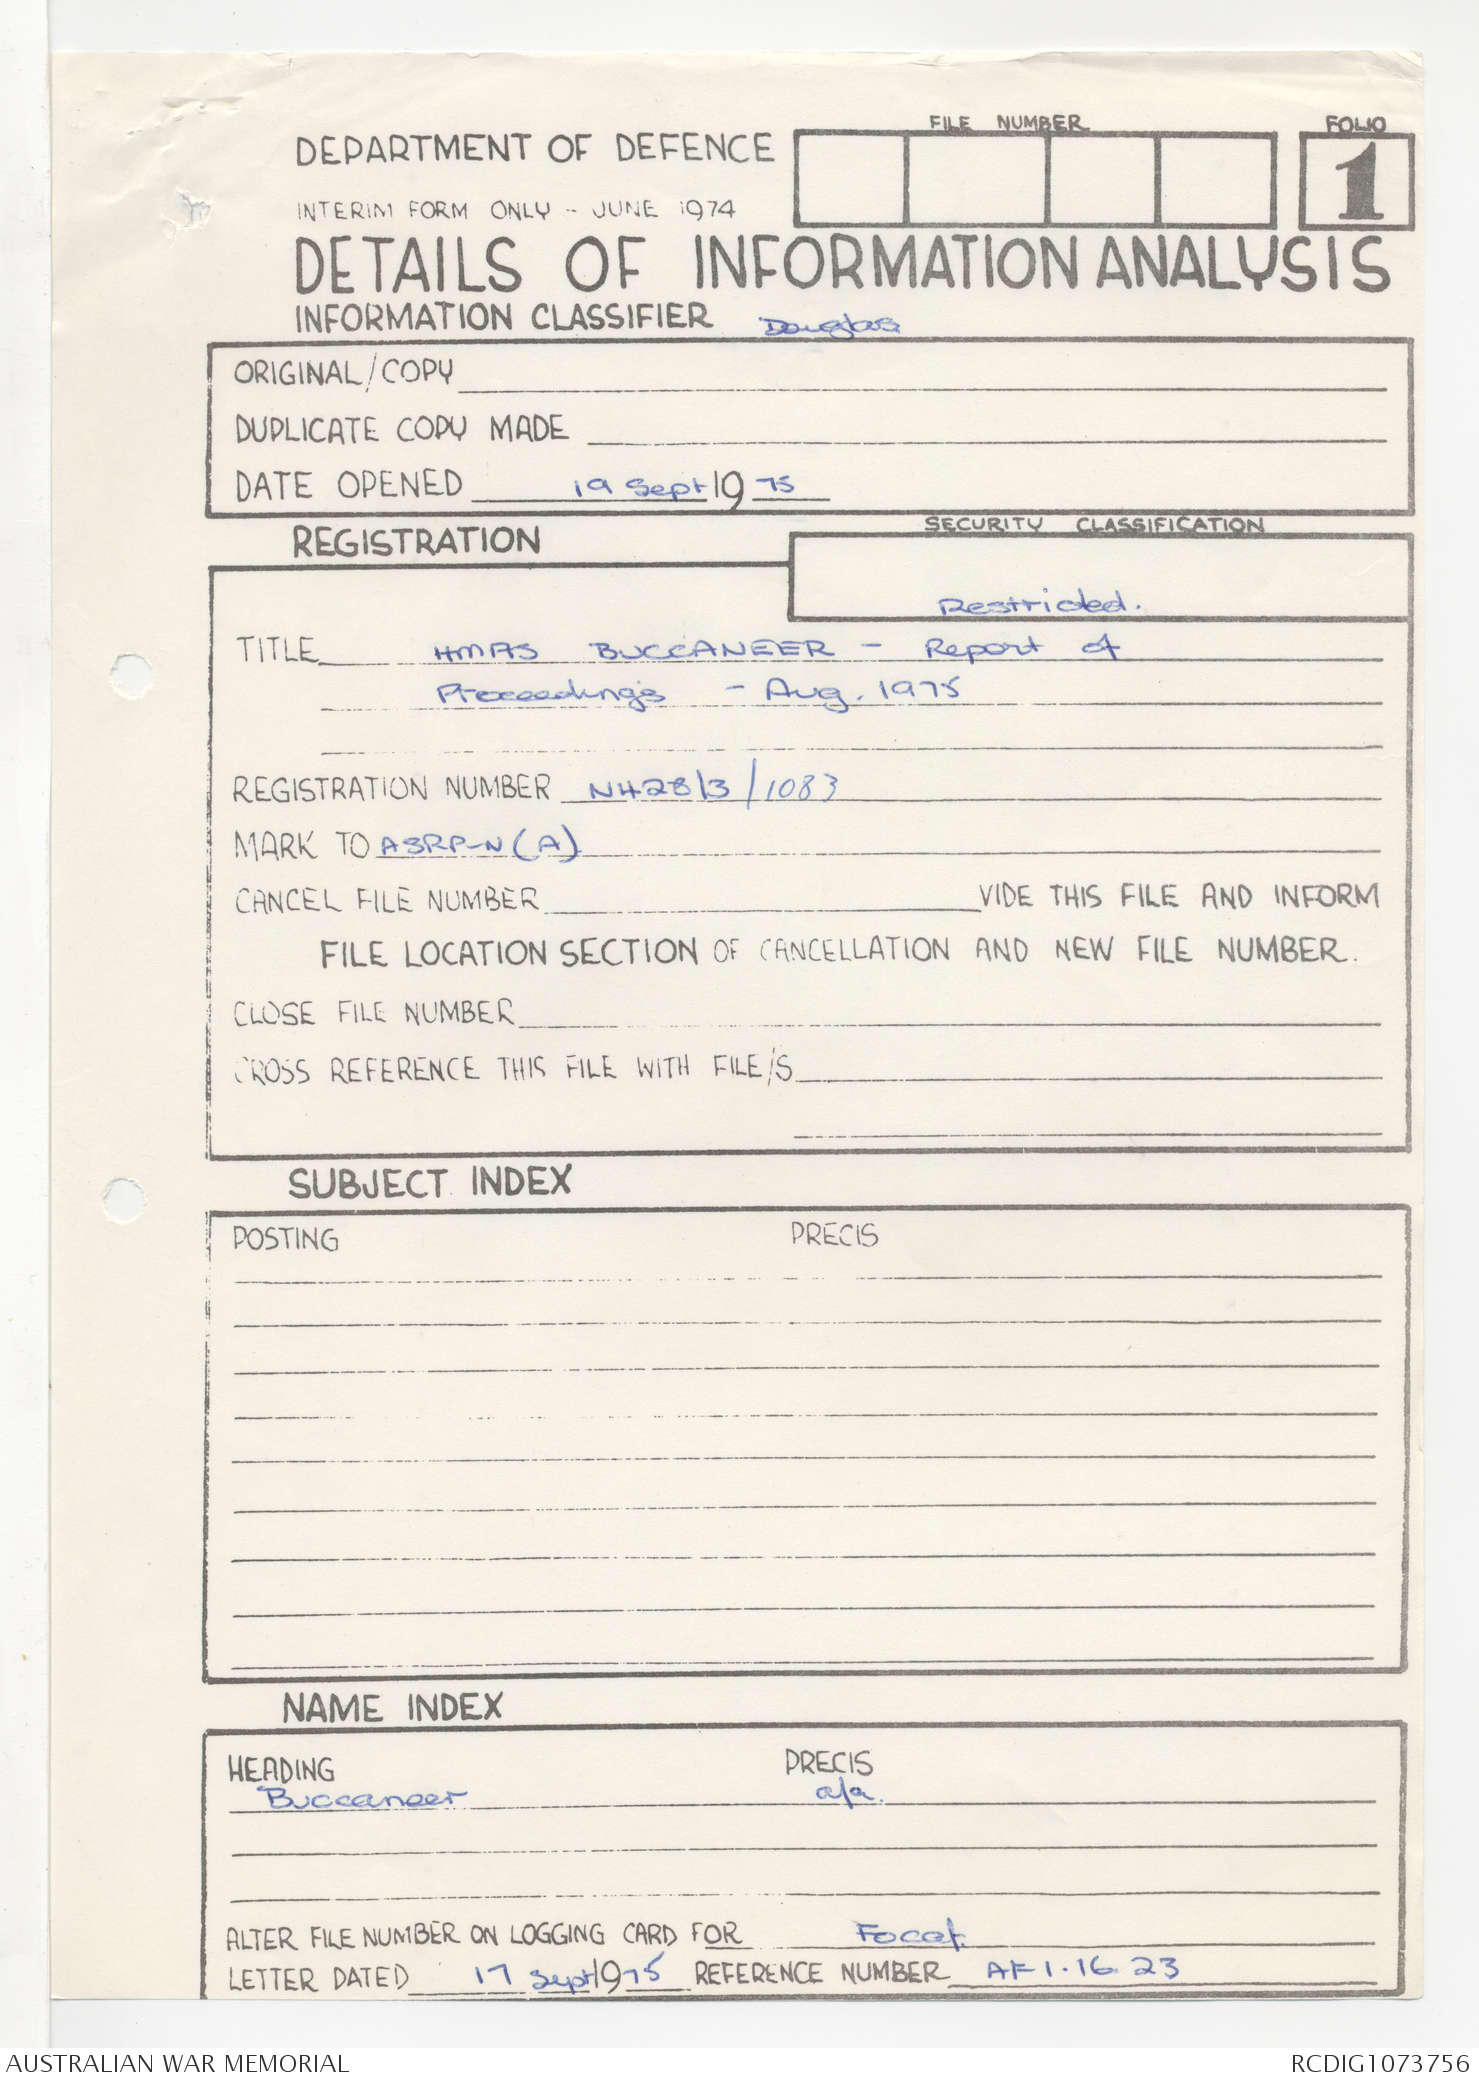 FILE NUMBER
FOLIO
DEPARTMENT OF DEFENCE
1
INTERIM FORM ONLY - JUNE 1974
DETAILS OF INFORMATION ANALYSIS
INFORMATION CLASSIFIER Douglas
ORIGINAL/COPY
DUPLICATE COPY MADE
DATE OPENED 19 Sept 19 75
REGISTRATION
SECURITY CLASSIFICATION
Restricted.
TITLE HMAS BUCCANEER - Report of
Proceedings - Aug. 1975
REGISTRATION NUMBER NH28/3/1083
MARK TO ASRP-N(A)
CANCEL FILE NUMBER VIDE THIS FILE AND INFORM
FILE LOCATION SECTION OF CANCELLATION AND NEW FILE NUMBER.
CLOSE FILE NUMBER
CROSS REFERENCE THIS FILE WITH FILE/S
SUBJECT INDEX
POSTING PRECIS
NAME INDEX
HEADING PRECIS
Buccaneer a/a.
ALTER FILE NUMBER ON LOGGING CARD FOR Focaf.
LETTER DATED 17 Sept 1975 REFERENCE NUMBER AF 1.16.23
AUSTRALIAN WAR MEMORIAL
RCDIG1073756